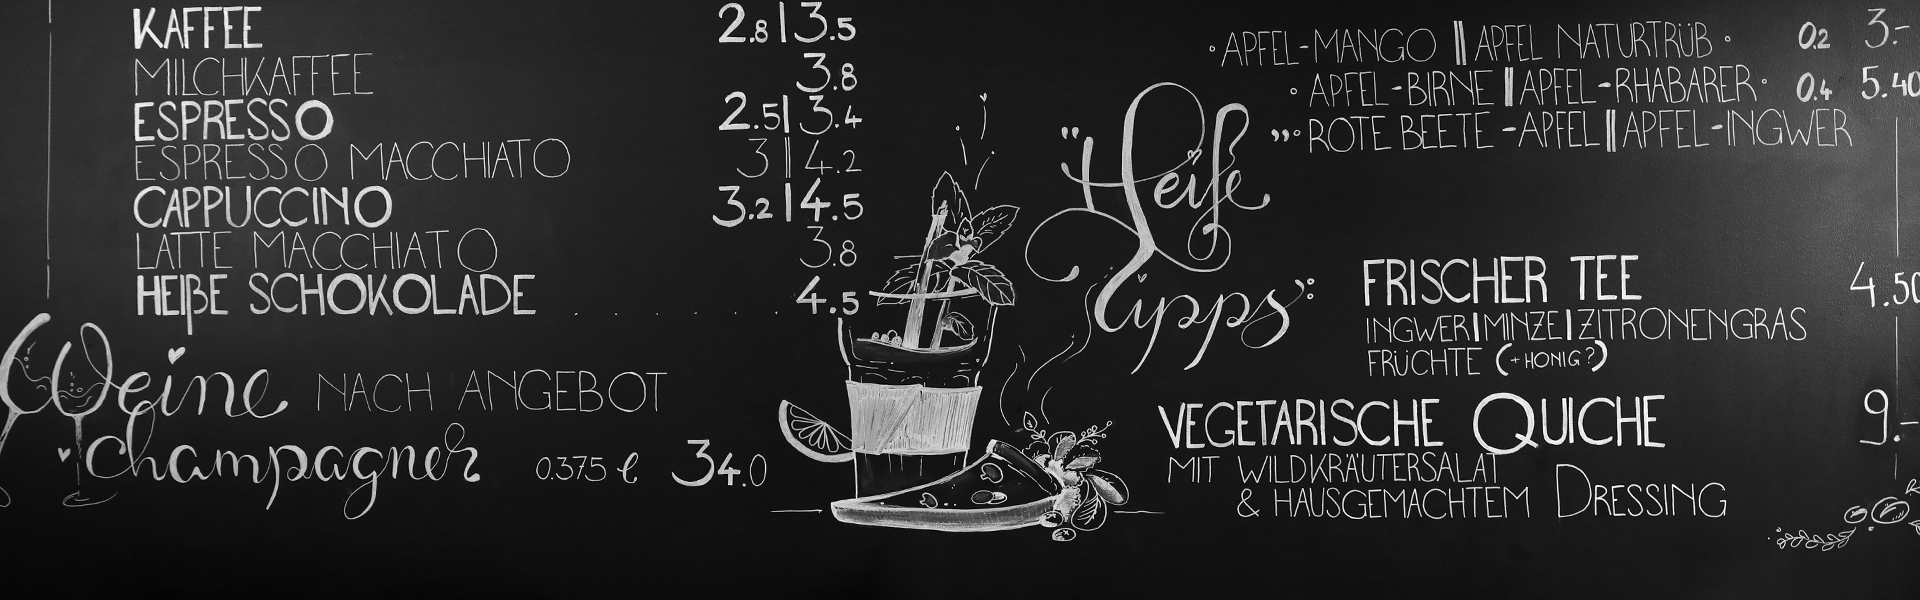 KAFFEE 2.8 | 3.5
MILCHKAFFEE 3.8
ESPRESSO 2.5 | 3.4
ESPRESSO MACCHIATO 3 || 4.2
CAPPUCCINO 3.2 | 4.5
LATTE MACCHIATO 3.8
HEIßE SCHOKOLADE 4.5
Weine NACH ANGEBOT
Champagner 0.375 ℓ 34.0
• APFEL-MANGO || APFEL NATURTRÜB • 0.2 3.-
• APFEL-BIRNE || APFEL-RHABARER • 0.4 5.40
• ROTE BEETE-APFEL || APFEL-INGWER
"Heiße"
Tipps:
FRISCHER TEE 4.50
INGWER | MINZE | ZITRONENGRAS
FRÜCHTE (+HONIG?)
VEGETARISCHE QUICHE 9.-
MIT WILDKRÄUTERSALAT
& HAUSGEMACHTEM DRESSING